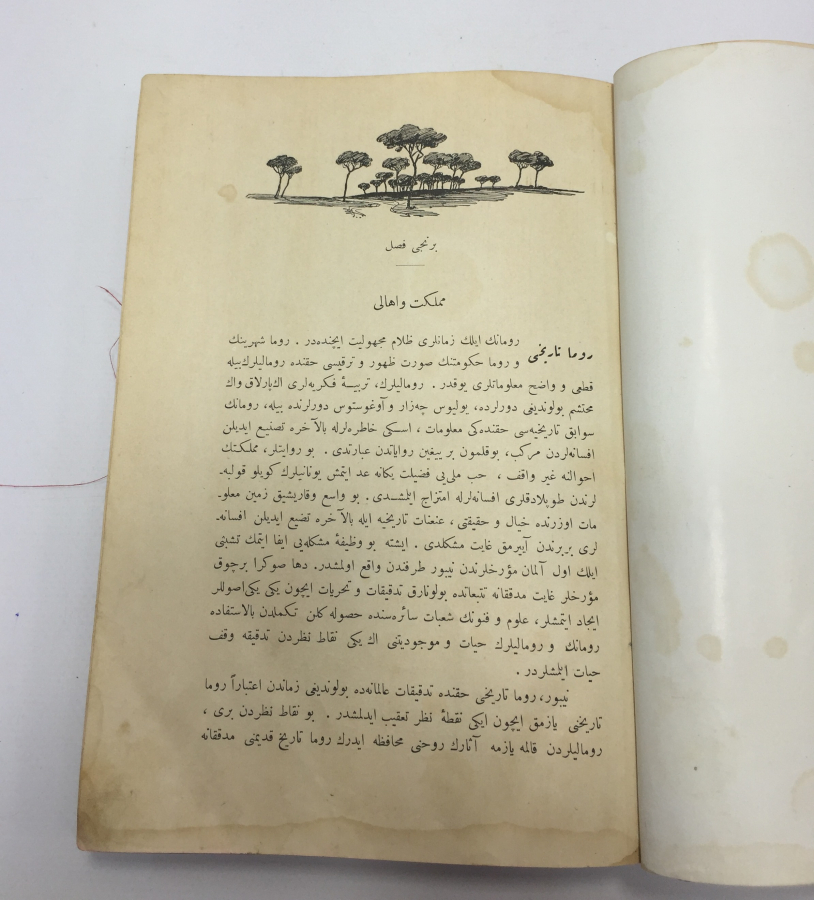 برنجی فصل
مملکت واهالی
روما تاریخی
رومانك ایلك زمانلری ظلام مجهولیت ایچنده‌در . روما شهرینك
و روما حکومتنك صورت ظهور و ترقیسی حقنده رومالیلرك بیله
قطعی و واضح معلوماتلری یوقدر . رومالیلرك، تربیهٔ فکریه‌لری اك پارلاق واك
محتشم بولوندیغی دورلرده، یولیوس چه‌زار و آوغوستوس دورلرنده بیله، رومانك
سوابق تاریخیه‌سی حقنده‌کی معلومات ، اسکی خاطره‌لرله بالآخره تصنیع ایدیلن
افسانه‌لردن مرکب، بوقلمون بر ییغین روایاتدن عبارتدی . بو روایتلر، مملکتك
احوالنه غیر واقف ، حب ملی‌یی فضیلت یکانه عد ایتمش یونانیلرك کویلو قولبه‌ـ
لرندن طوپلادقلری افسانه‌لرله امتزاج ایلمشدی . بو واسع وقاریشیق زمین معلوـ
مات اوزرنده خیال و حقیقتی ، عنعنات تاریخیه ایله بالآخره تصنیع ایدیلن افسانه‌ـ
لری بربرندن آییرمق غایت مشکلدی . ایشته بو وظیفهٔ مشکله‌یی ایفا ایتمك تشبثی
ایلك اول آلمان مؤرخلرندن نیبور طرفندن واقع اولمشدر. دها صوکرا برچوق
مؤرخلر غایت مدققانه تتبعاتده بولونارق تدقیقات و تحریات ایچون یکی یکی اصوللر
ایجاد ایتمشلر، علوم و فنونك شعبات سائره‌سنده حصوله کلن تکملدن بالاستفاده
رومانك و رومالیلرك حیات و موجودیتنی اك یکی نقاط نظردن تدقیقه وقف
حیات ایلمشلردر .
نیبور، روما تاریخی حقنده تدقیقات عالمانه‌ده بولوندیغی زماندن اعتباراً روما
تاریخنی یازمق ایچون ایکی نقطهٔ نظر تعقیب ایدلمشدر . بو نقاط نظردن بری ،
رومالیلردن قالمه یازمه آثارك روحنی محافظه ایدرك روما تاریخ قدیمنی مدققانه